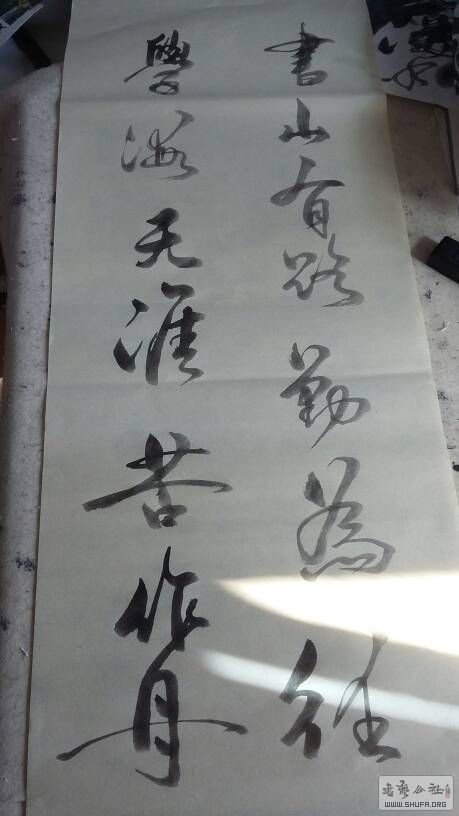 書山有路勤為徑
學海无涯苦作舟
書藝公社
WWW.SHUFA.ORG